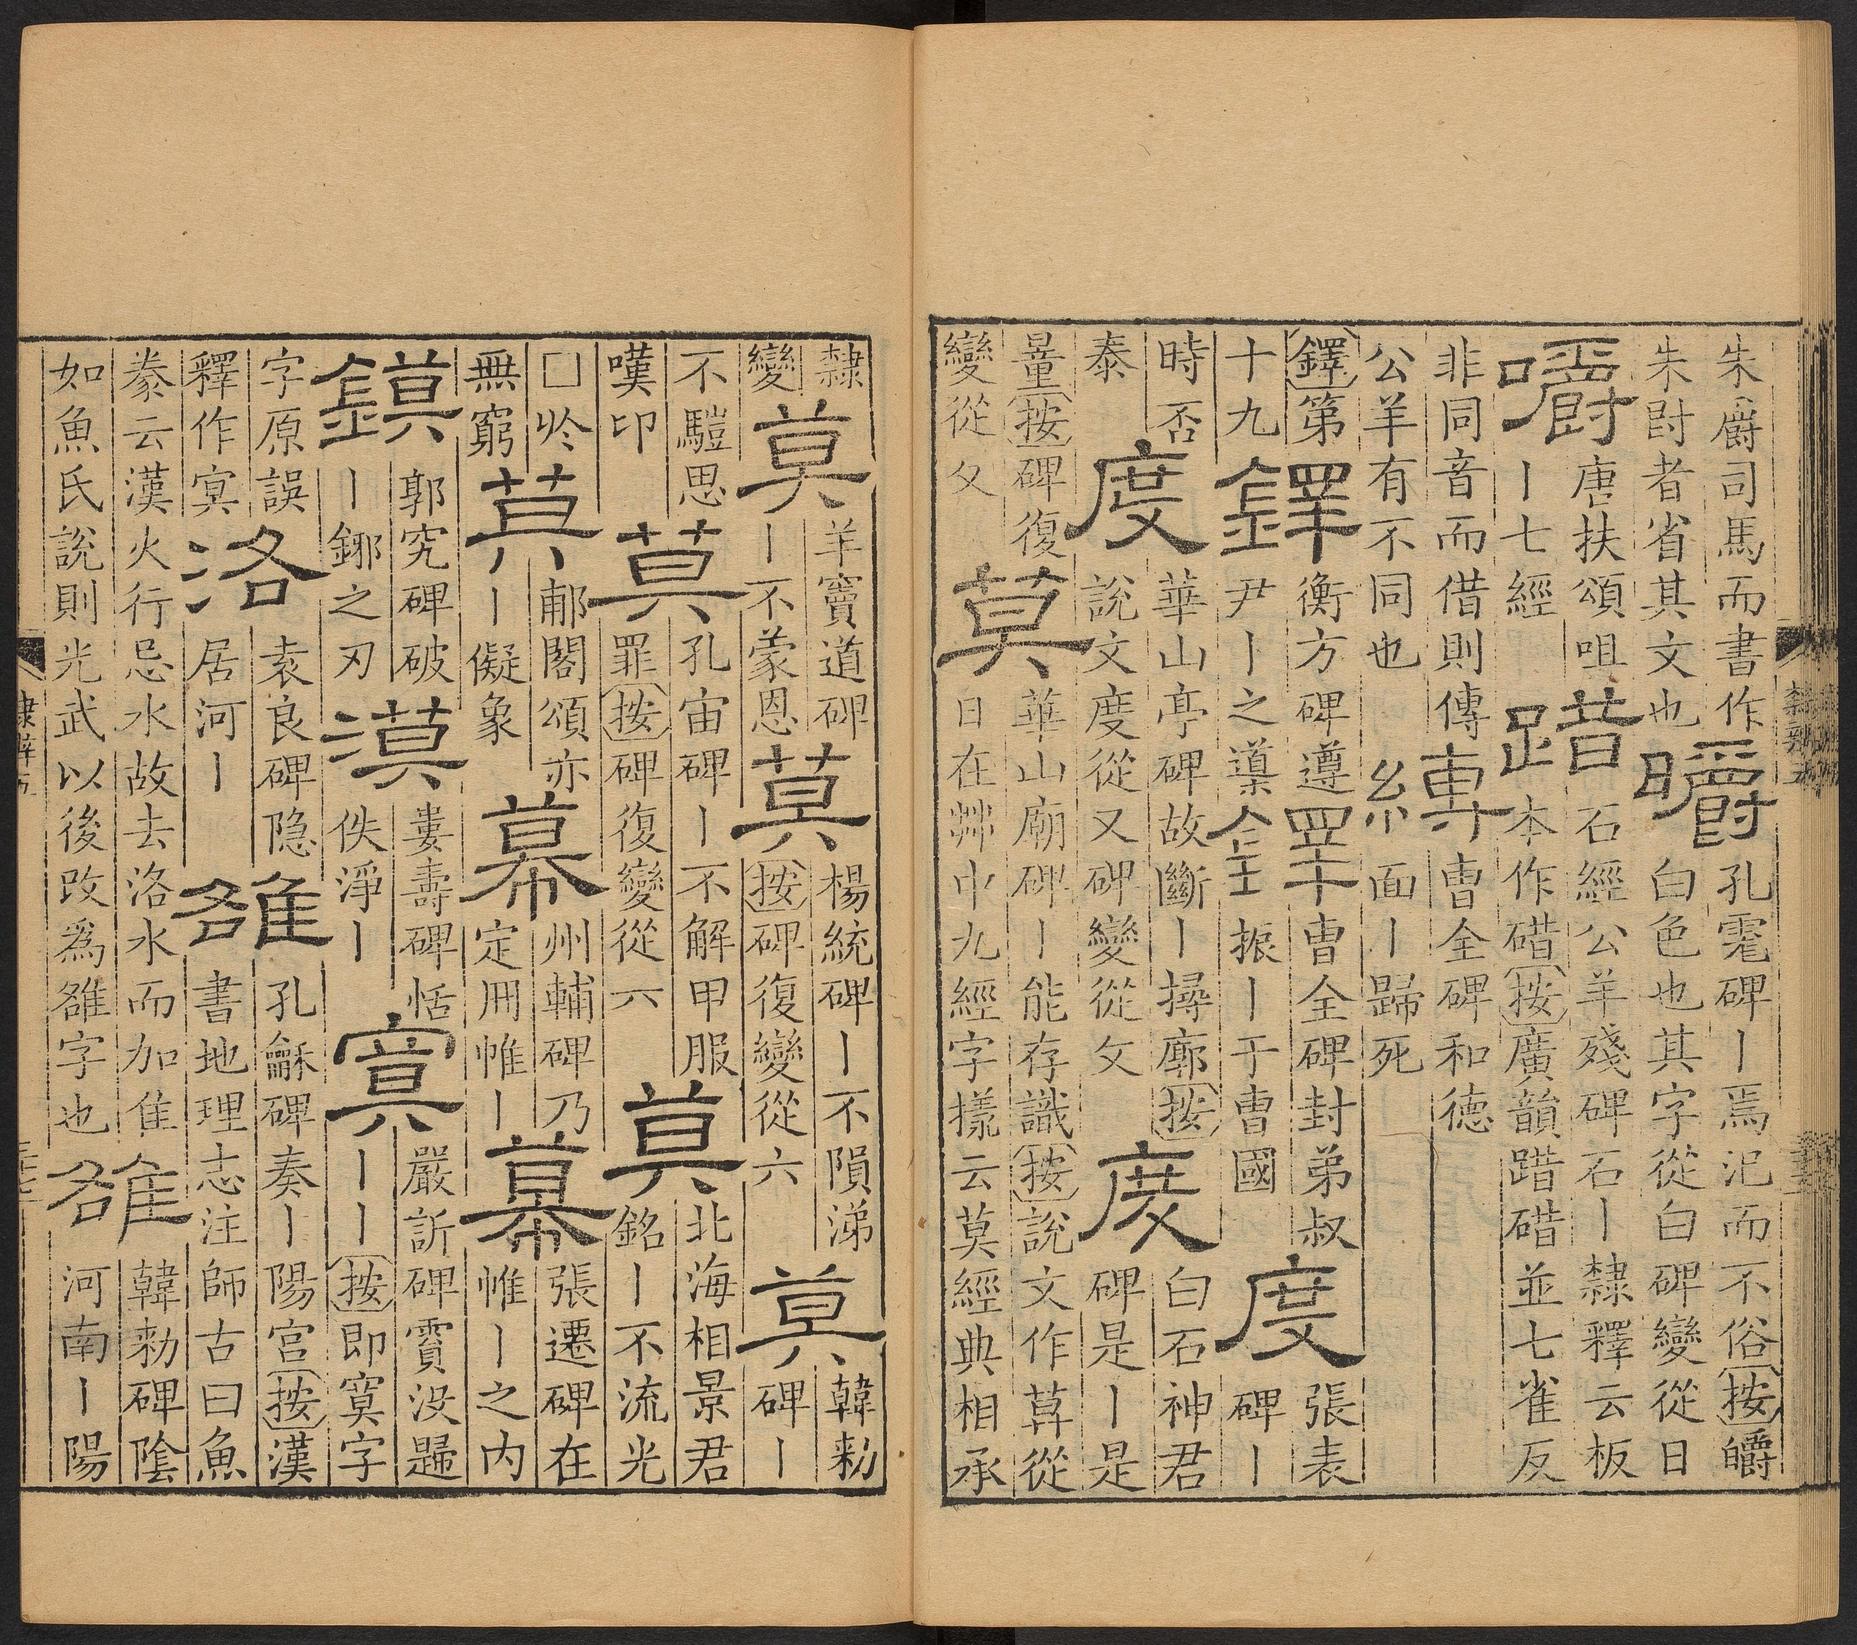 朱爵司馬而書作
朱𡬠者省其文也
皭
孔宙碑丨焉汜而不俗按皭
白色也其字從白碑變從日
嚼
唐扶頌咀
丨七經
踖
石經公羊殘碑石丨隸釋云板
本作碏按廣韻踖碏並七雀反
非同音而借則傳
公羊有不同也
縛
曹全碑和德
面丨歸死
鐸第
十九
鐸
衡方碑遵
尹丨之𨗓
鐸
曹全碑封弟叔
振丨于曹國
度
張表
碑丨
時否
泰
度
華山亭碑故斷丨㩊廓按
說文度從又碑變從攵
度
白石神君
碑是丨是
量按碑復
變從攵
莫
華山廟碑丨能存識按說文作茻從
日在茻中九經字㨾云莫經典相承
隸
變
莫
羊竇道碑
丨不蒙恩
莫
楊統碑丨不隕涕
按碑復變從六
莫
韓勑
碑丨
不騹思
嘆卬
莫
孔宙碑丨不解甲服
罪按碑復變從六
莫
北海相景君
銘丨不流光
□於
無窮
莫
郙閣頌亦
丨儗象
幕
州輔碑乃
定𠕋帷丨
幕
張遷碑在
帷丨之内
鏌
郭究碑破
丨鋣之刃
漠
婁壽碑恬
佚淨丨
寞
嚴訢碑賓没歸
丨丨按即寞字
字原誤
釋作冥
洛
袁良碑隱
居河丨
雒
孔龢碑奏丨陽宮按漢
書地理志注師古曰魚
豢云漢火行忌水故去洛水而加隹
如魚氏說則光武以後改為雒字也
雒
韓勑碑陰
河南丨陽